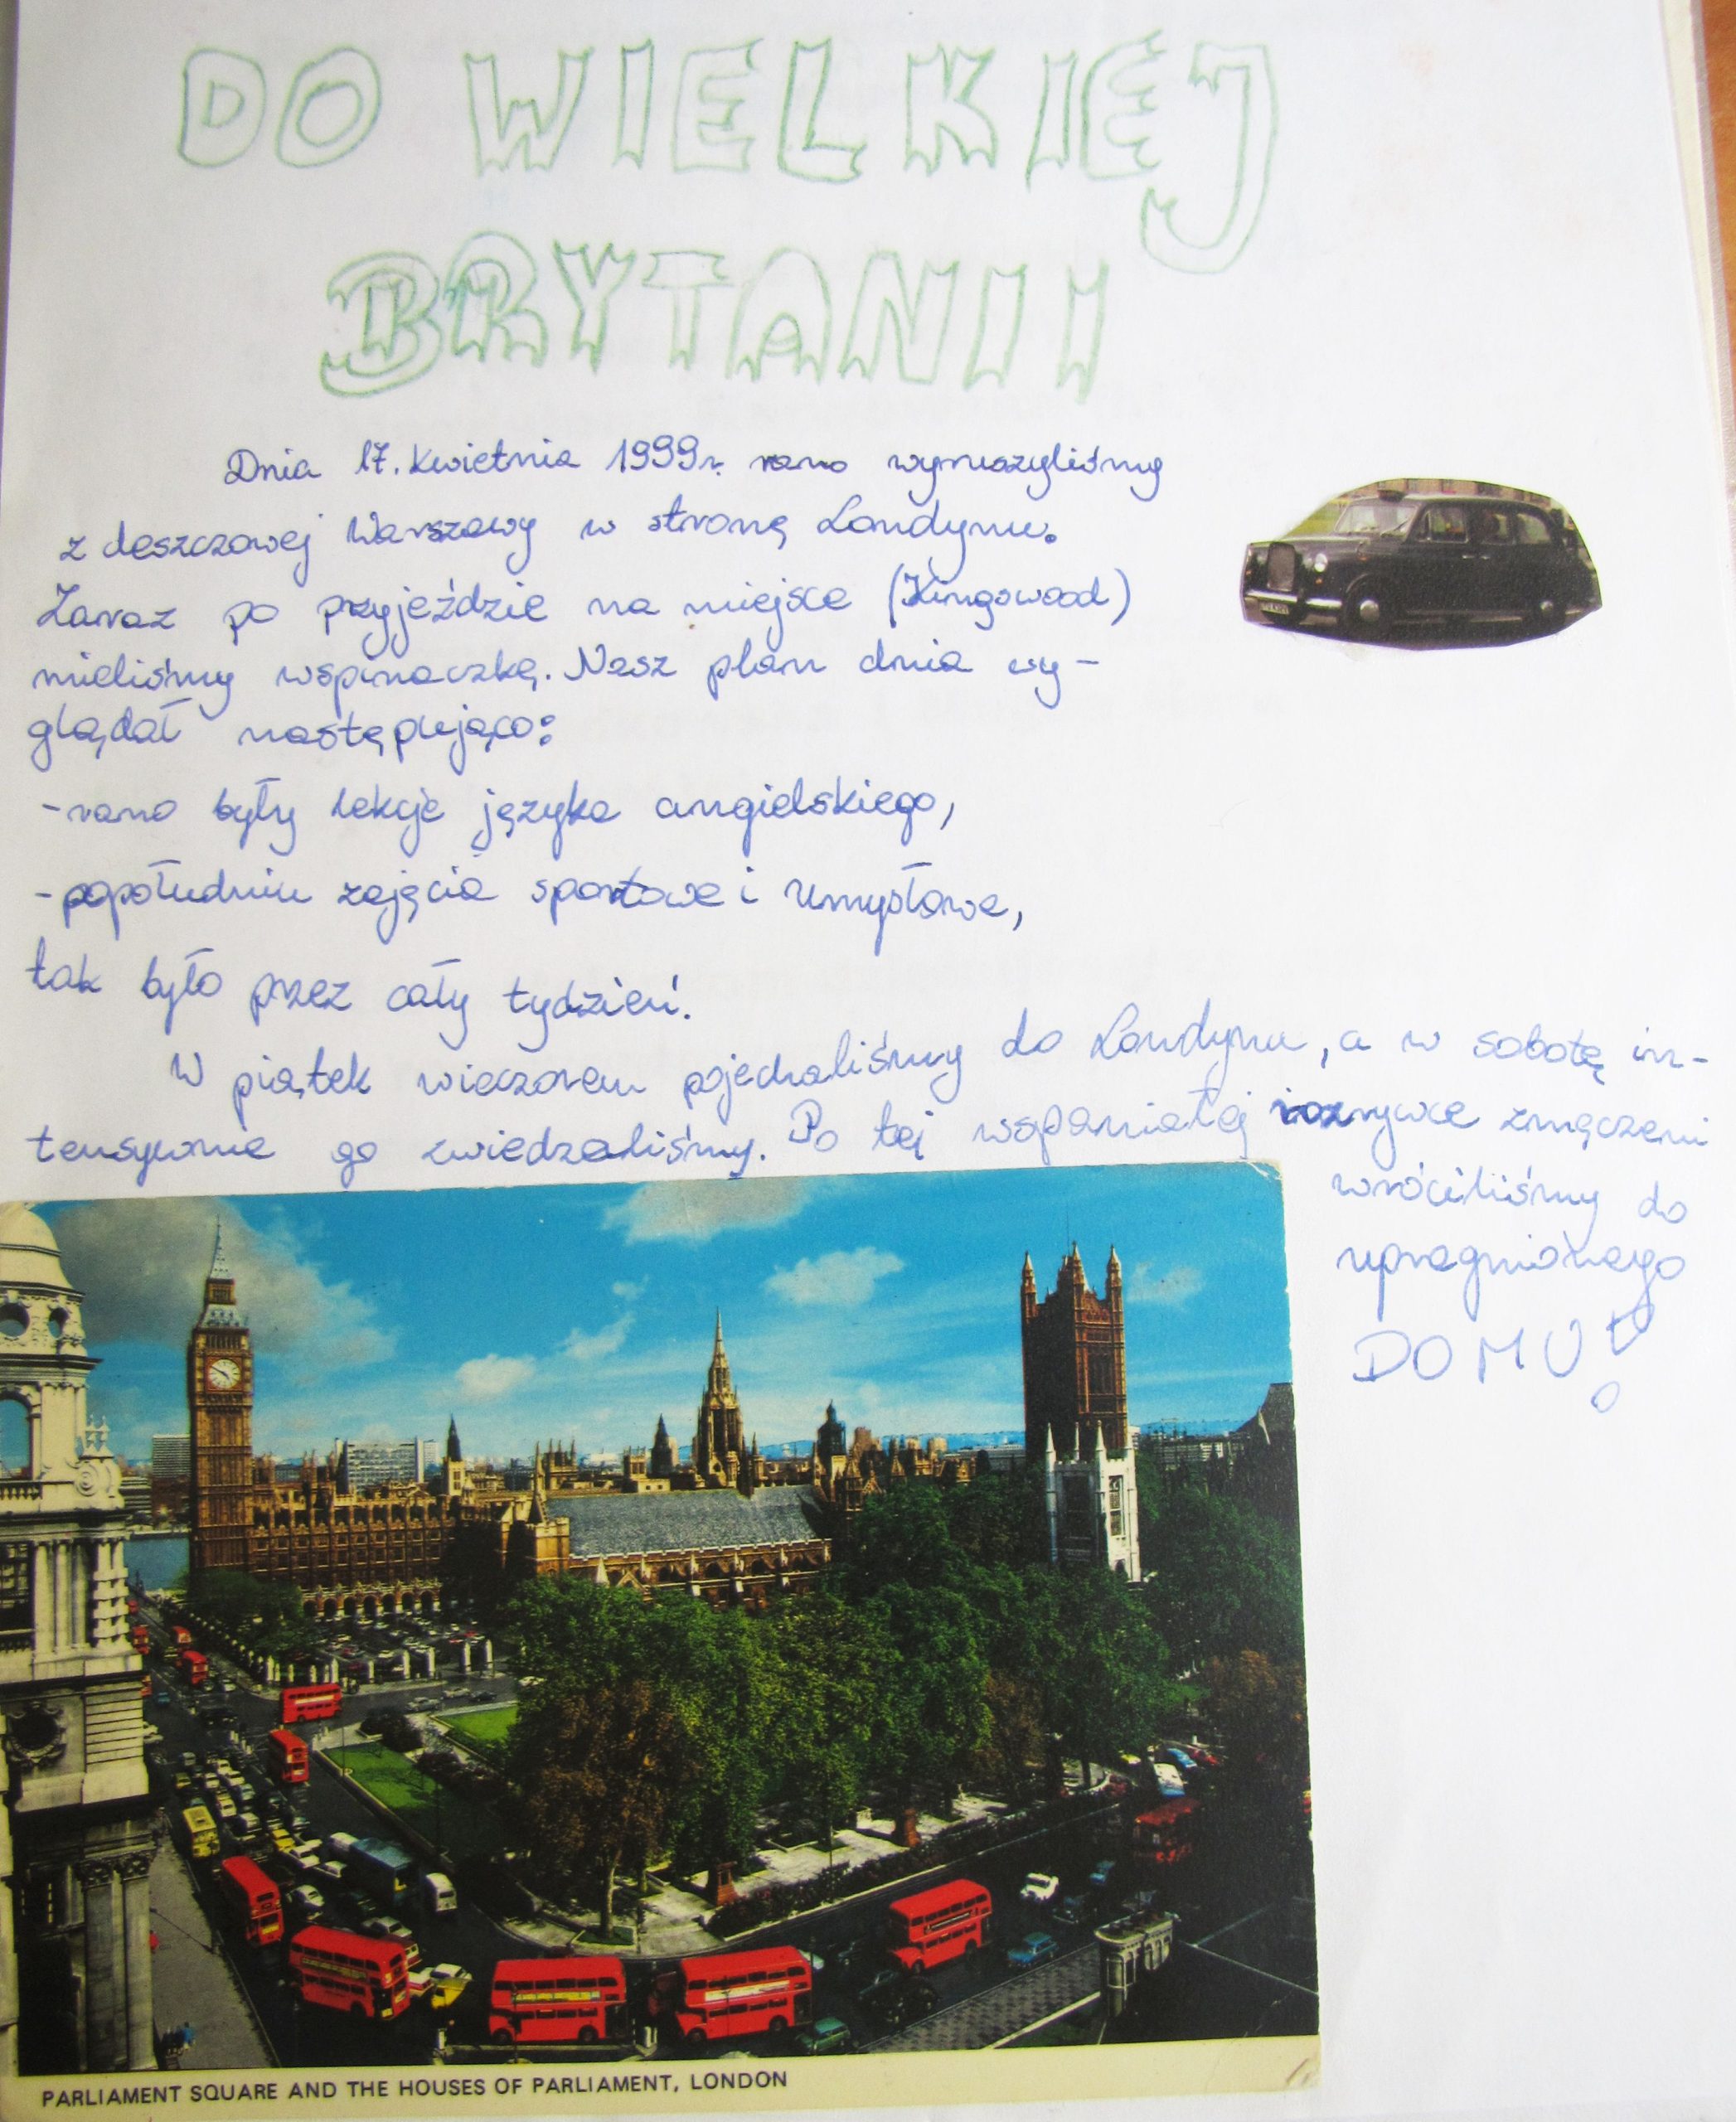 DO WIELKIEJ
BRYTANII
Dnia 17. kwietnia 1999r. rano wyruszyliśmy
z deszczowej Warszawy w stronę Londynu.
Zaraz po przyjeździe na miejsce (Kingswood)
mieliśmy wspinaczkę. Nasz plan dnia wy-
glądał następująco:
-rano były lekcje języka angielskiego,
-popołudniu zajęcia sportowe i umysłowe,
tak było przez cały tydzień.
W piątek wieczorem pojechaliśmy do Londynu, a w sobotę in-
tensywnie go zwiedzaliśmy. Po tej wspaniałej rozrywce zmęczeni
wróciliśmy do
upragnionego
DOMU!
PARLIAMENT SQUARE AND THE HOUSES OF PARLIAMENT, LONDON